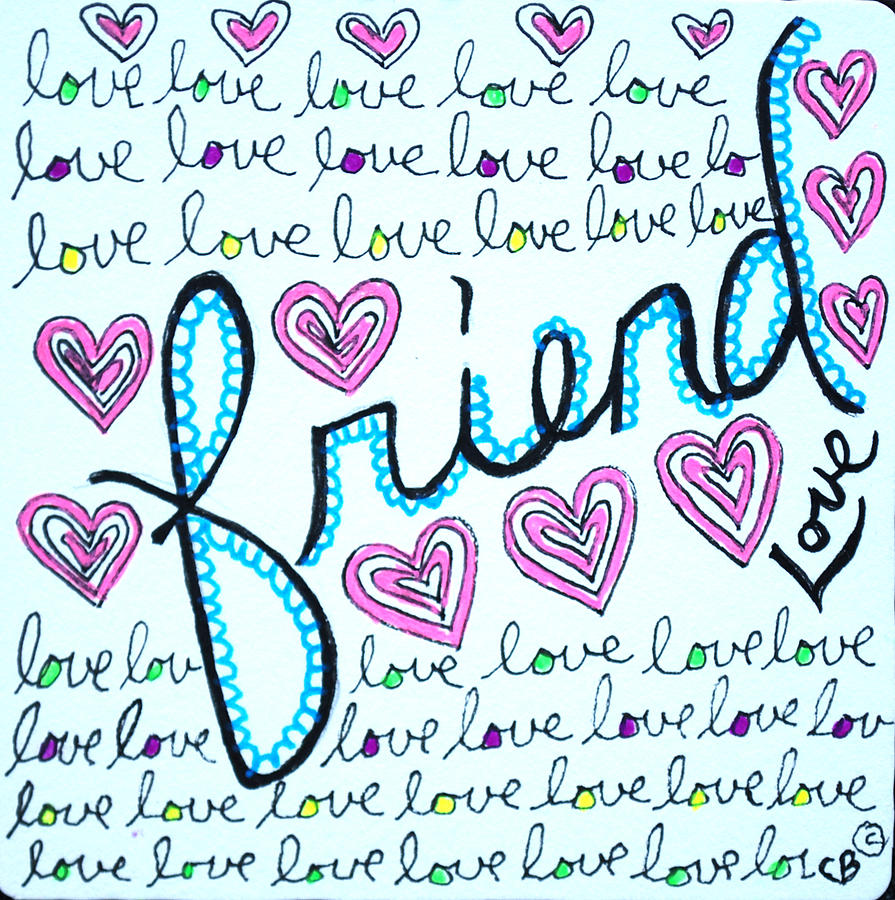 love love love love love
love love love love lo
love love love love love love
friend
Love
love lov love love love love
love love love love love love lov
love love love love love love love
love love love love love love lo CB ©